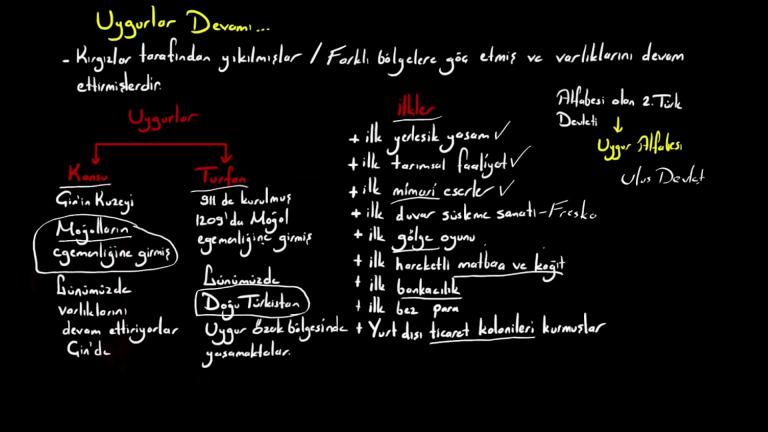 Uygurlar Devamı...
- Kırgızlar tarafından yıkılmışlar / Farklı bölgelere göç etmiş ve varlıklarını devam
ettirmişlerdir.
Uygurlar
Kansu
Çin'in Kuzeyi
Moğolların
egemenliğine girmiş
Günümüzde
varlıklarını
devam ettiriyorlar
Çin'de
Turfan
911 de kurulmuş
1209'da Moğol
egemenliğine girmiş
Günümüzde
Doğu Türkistan
Uygur Özek bölgesinde
yaşamaktalar.
İlkler
+ ilk yerleşik yaşam ✓
+ ilk tarımsal faaliyet ✓
+ ilk mimari eserler ✓
+ ilk duvar süsleme sanatı - Fresko
+ ilk gölge oyunu
+ ilk hareketli matbaa ve kağıt
+ ilk bankacılık
+ ilk bez para
+ Yurt dışı ticaret kolonileri kurmuşlar
Alfabesi olan 2. Türk
Devleti
Uygur Alfabesi
Ulus Devlet